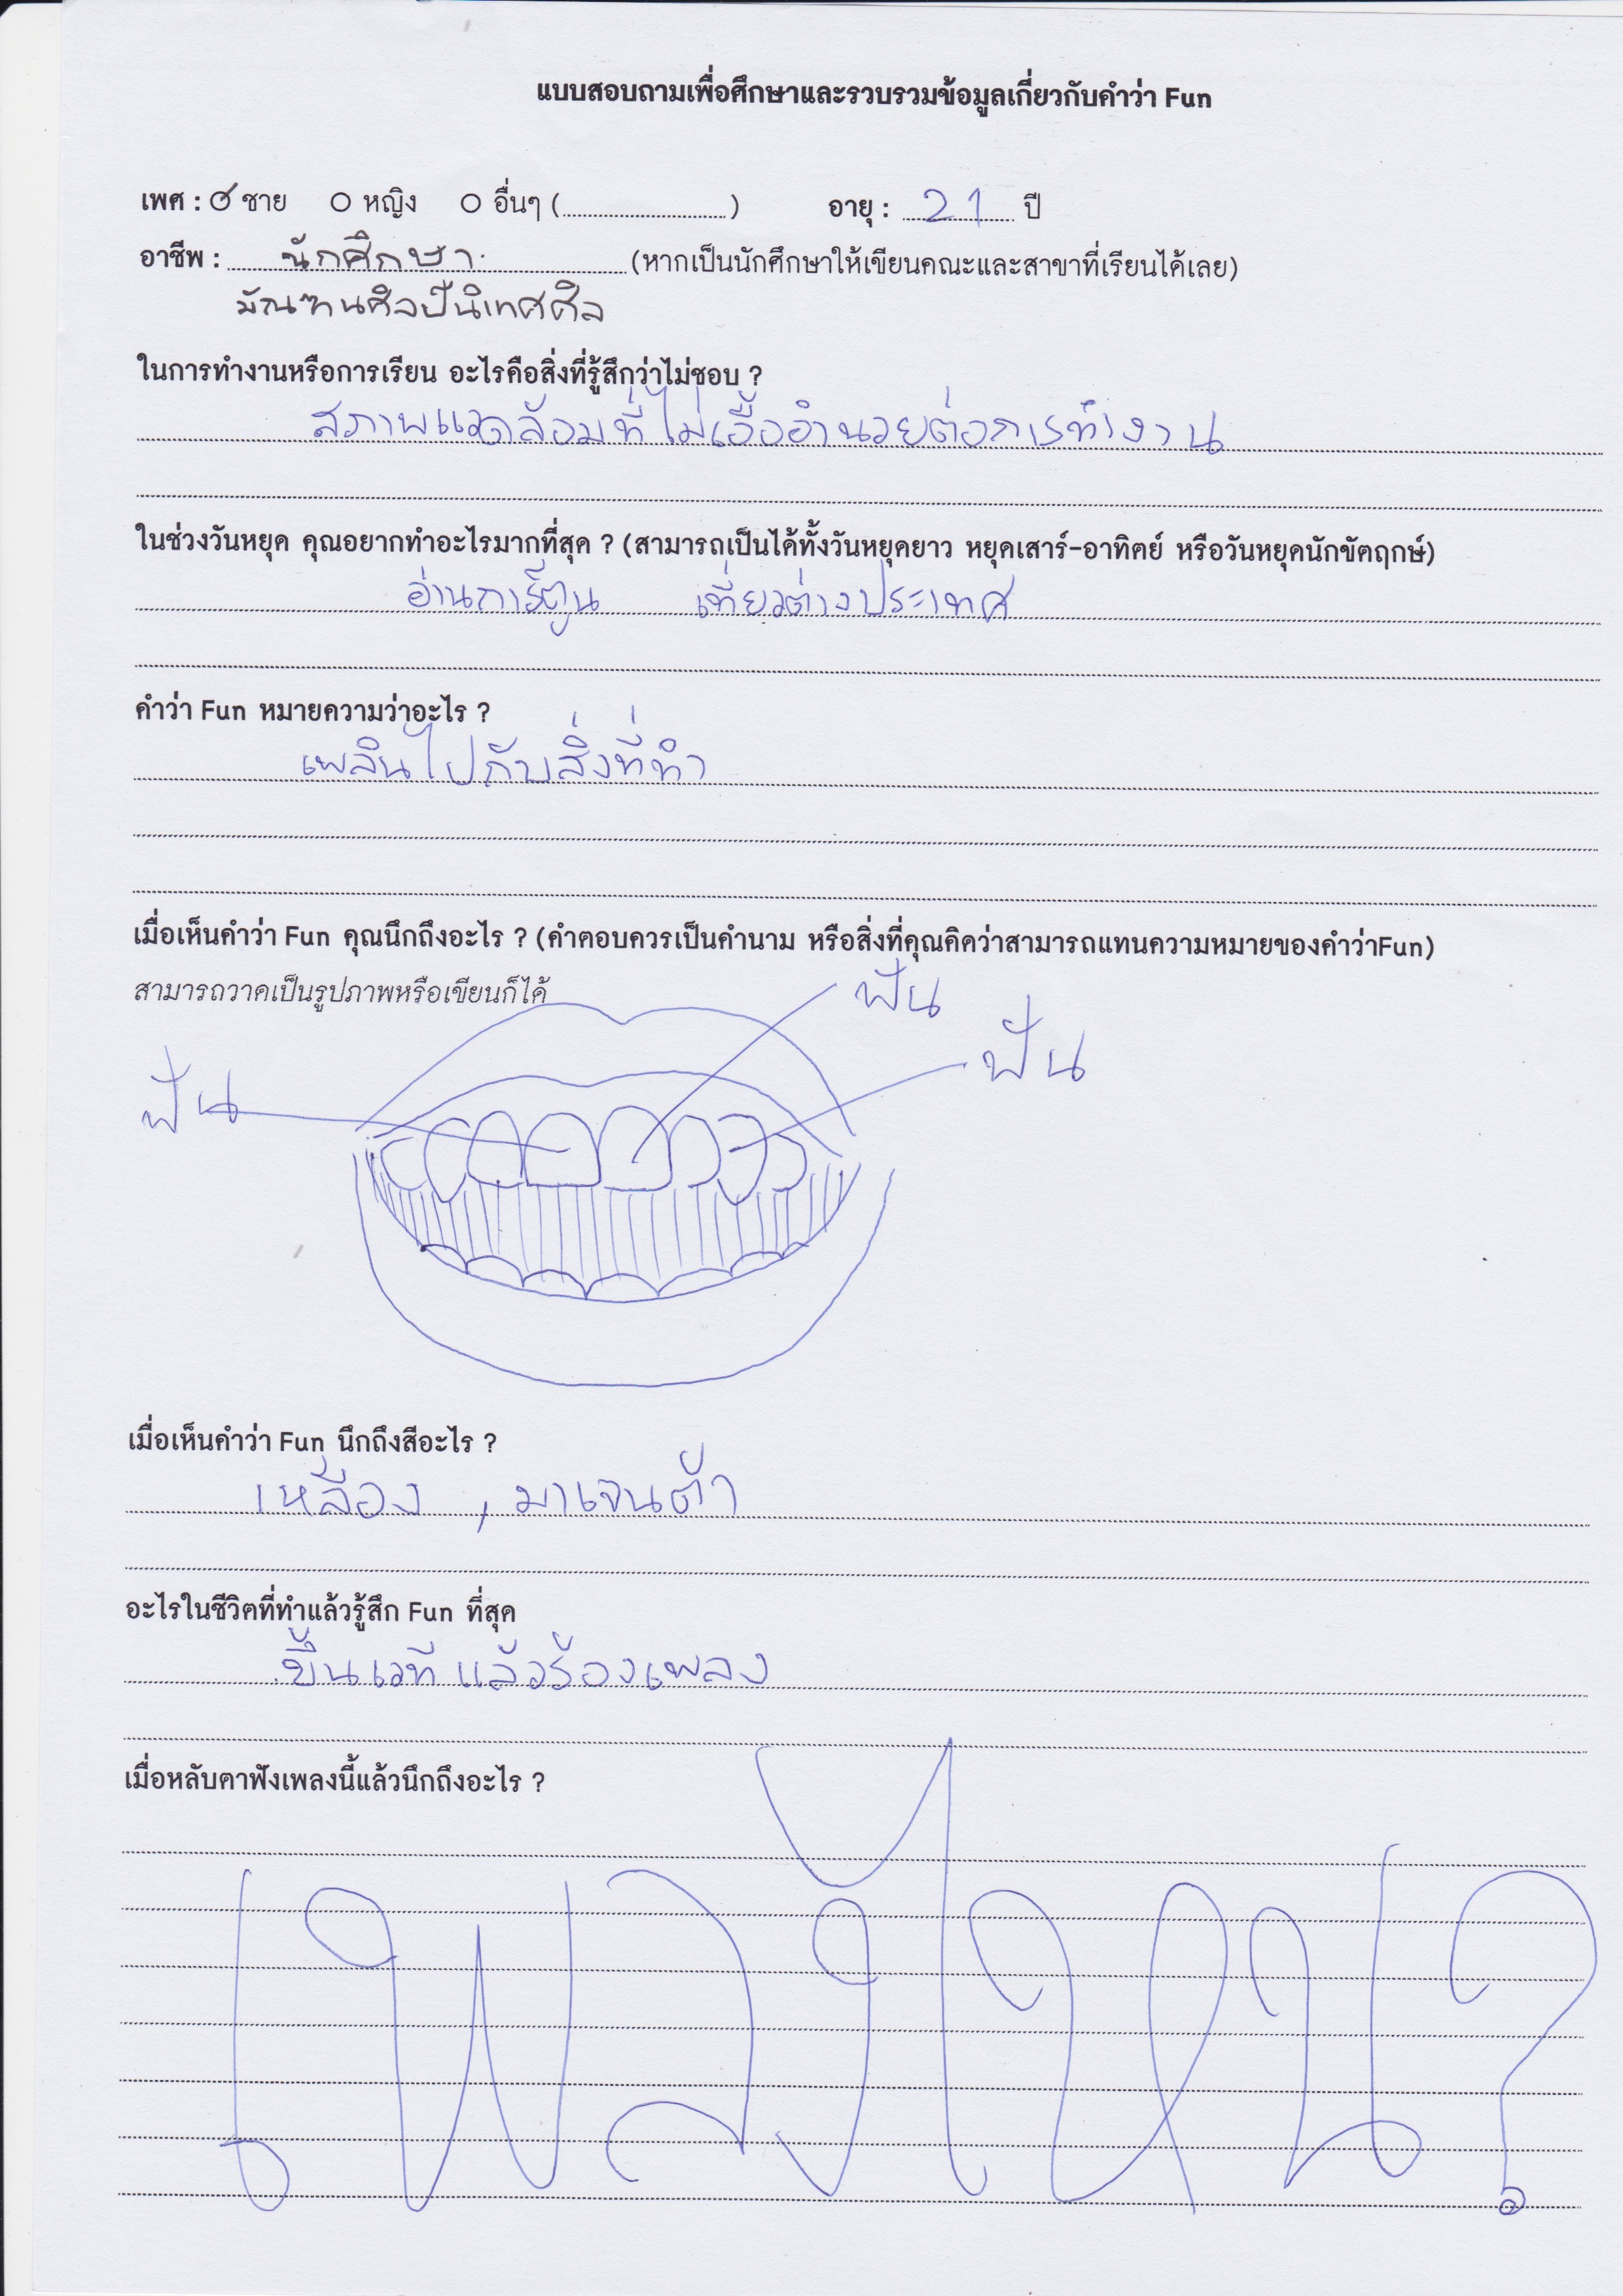 แบบสอบถามเพื่อศึกษาและรวบรวมข้อมูลเกี่ยวกับคำว่า Fun
เพศ : ชาย หญิง อื่นๆ (..............................) อายุ : 21 ปี
อาชีพ : นักศึกษา (หากเป็นนักศึกษาให้เขียนคณะและสาขาที่เรียนได้เลย)
มัณฑนศิลป์นิเทศศิล
ในการทำงานหรือการเรียน อะไรคือสิ่งที่รู้สึกว่าไม่ชอบ ?
สภาพแวดล้อมที่ไม่เอื้ออำนวยต่อการทำงาน
ในช่วงวันหยุด คุณอยากทำอะไรมากที่สุด ? (สามารถเป็นได้ทั้งวันหยุดยาว หยุดเสาร์-อาทิตย์ หรือวันหยุดนักขัตฤกษ์)
อ่านการ์ตูน เที่ยวต่างประเทศ
คำว่า Fun หมายความว่าอะไร ?
เพลินไปกับสิ่งที่ทำ
เมื่อเห็นคำว่า Fun คุณนึกถึงอะไร ? (คำตอบควรเป็นคำนาม หรือสิ่งที่คุณคิดว่าสามารถแทนความหมายของคำว่าFun)
สามารถวาดเป็นรูปภาพหรือเขียนก็ได้
ฟัน
ฟัน
ฟัน
เมื่อเห็นคำว่า Fun นึกถึงสีอะไร ?
เหลือง , มาเจนต้า
อะไรในชีวิตที่ทำแล้วรู้สึก Fun ที่สุด
ขึ้นเวทีแล้วร้องเพลง
เมื่อหลับตาฟังเพลงนี้แล้วนึกถึงอะไร ?
เพลงไหน?